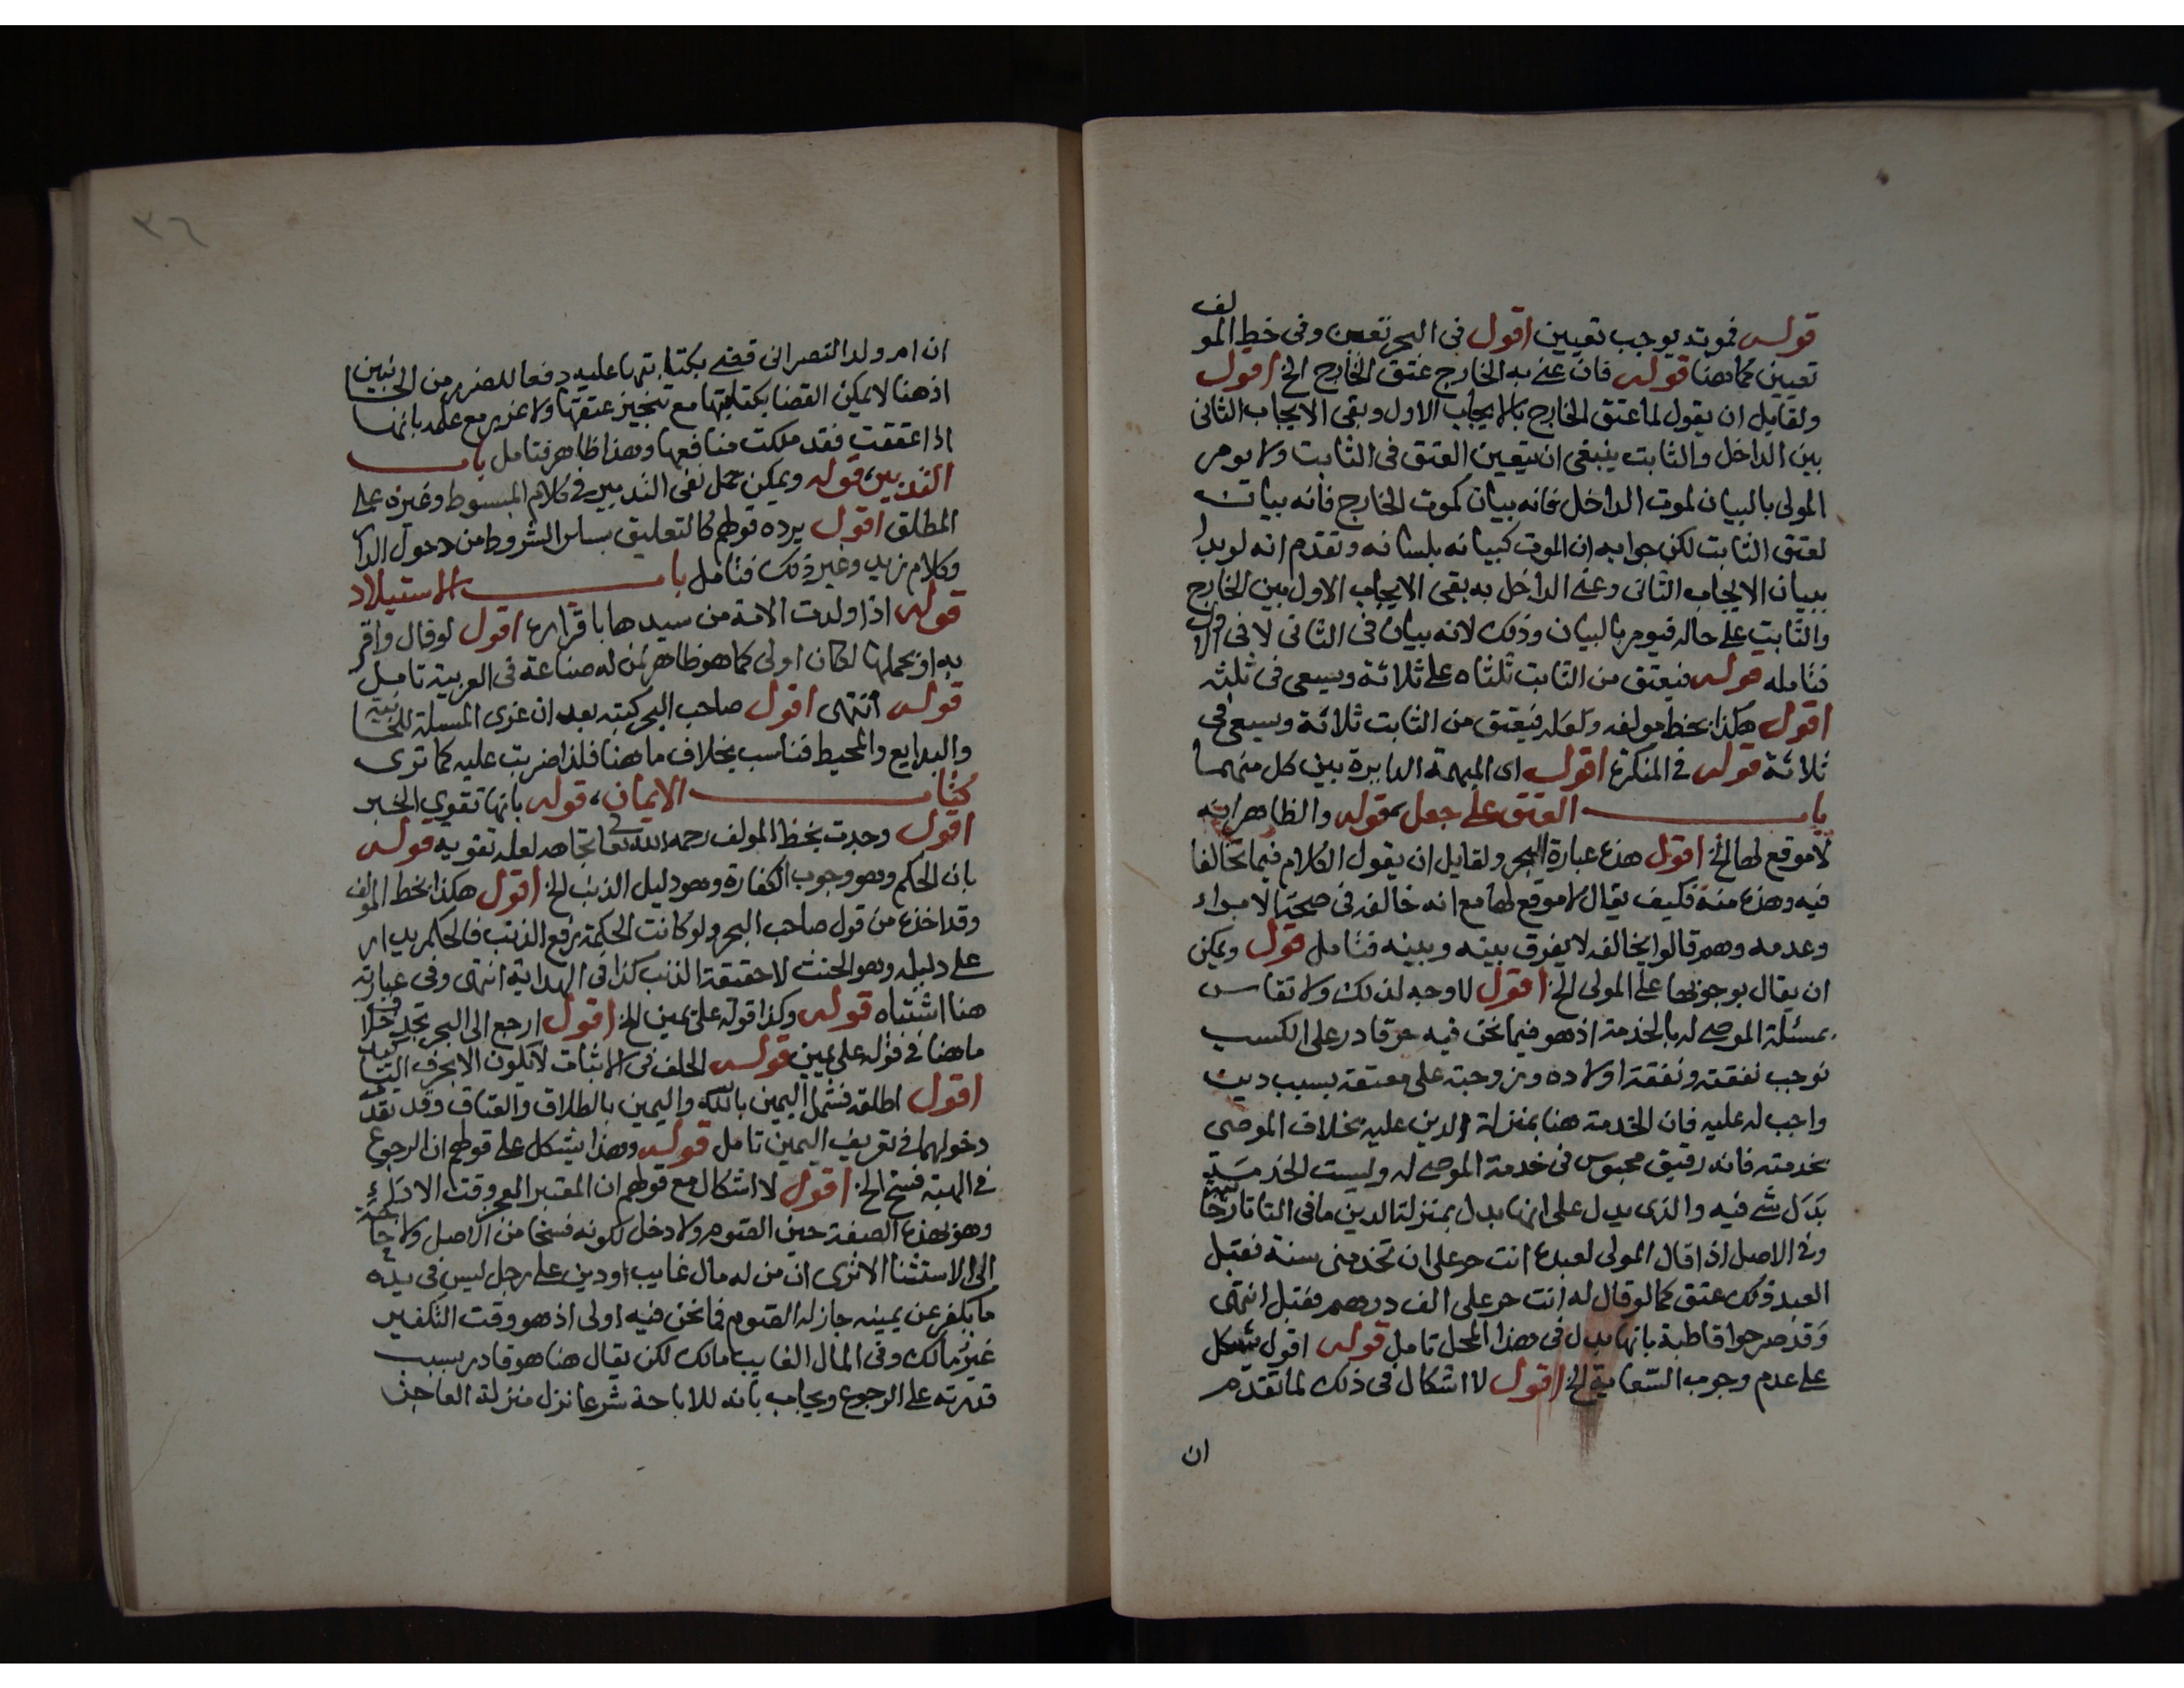 قوله فموته يوجب تعيين اقول في البحر تعين وفي خط المولف
تعيين كما هنا قوله فان عني به الخارج عتق الخارج الخ اقول
ولقايل ان يقول لما عتق الخارج بالايجاب الاول وبقي الايجاب الثاني
بين الداخل والثابت ينبغي ان يتعين العتق في الثابت ولا يومر
المولى بالبيان لموت الداخل فانه بيان كموت الخارج فانه بيان
لعتق الثابت لكن جوابه ان الموت كبيانه بلسانه وتقدم انه لو بدا
ببيان الايجاب الثاني وعني الداخل به بقي الايجاب الاول بين الخارج
والثابت على حاله فيومر بالبيان وذلك لانه بيان في الثاني لا في الاول
فتامله قوله فيعتق من الثابت ثلثاه على ثلاثة ويسعى في ثلثه
اقول هكذا بخط مولفه ولعله فيعتق من الثابت ثلاثة ويسعى في
ثلاثة قوله في المنكرة اقول اي المبهمة الدايرة بين كل منهما
باب العتق على جعل قوله والظاهر انه
لا موقع لها الخ اقول هذه عبارة البحر ولقايل ان يقول الكلام فيما تخالفا
فيه وهذه منه فكيف يقال لا موقع لها مع انه خالفه في صحة الابراء
وعدمه وهم قالوا بخالفه لا يفرق بينه وبينه فتامل قوله ويمكن
ان يقال بوجوبها على المولى الخ اقول لا وجه لذلك ولا تقاس
بمسئلة الموصى له بالخدمة اذ هو فيما نحن فيه حر قادر على الكسب
نوجب نفقته ونفقة اولاده وزوجته على معتقه بسبب دين
واجب له عليه فان الخدمة هنا بمنزلة الدين عليه بخلاف الموصى
بخدمته فانه رقيق محبوس في خدمة الموصى له وليست الخدمة
بدل شي فيه والذي يدل على انها بدل بمنزلة الدين ما في التاتارخانية
وفي الاصل اذا قال المولى لعبده انت حر على ان تخدمني سنة فقبل
العبد ذلك عتق كما لو قال له انت حر على الف درهم فقبل انتهى
وقد صرحوا قاطبة بانها بدل في هذا المحل تامل قوله اقول يشكل
على عدم وجوب السعاية الخ اقول لا اشكال في ذلك لما تقدم
ان
٣٦
ان ام ولد النصراني قضي بكتابتها عليه دفعا للضرر من الجانبين
اذ هنا لا يمكن القضا بكتابتها مع تنجيز عتقها ولا ضرر مع علمه بانها
اذا عتقت فقد ملكت منافعها وهذا ظاهر فتامل باب
التدبير قوله ويمكن حمل نفي التدبير في كلام المبسوط وغيره على
المطلق اقول يرده قولهم كالتعليق بساير الشروط من دخول الدار
وكلام زيد وغير ذلك فتامل باب الاستيلاد
قوله اذا ولدت الامة من سيدها باقراره اقول لو قال واقر
به او بحملها لكان اولى كما هو ظاهر لمن له صناعة في العربية تامل
قوله انتهى اقول صاحب البحر كتبه بعد ان عزى المسئلة للخانية
والبدايع والمحيط فناسب بخلاف ما هنا فلذا ضربت عليه كما ترى
كتاب الايمان قوله بانها تقوي الخبر
اقول وجدت بخط المولف رحمه الله تعالى تجاهه لعله تقويه قوله
بان الحكم وهو وجوب الكفارة وهو دليل الذنب الخ اقول هكذا بخط المولف
وقد اخذه من قول صاحب البحر ولو كانت الحكمة رفع الذنب فالحكم يدار
على دليله وهو الحنث لا حقيقة الذنب كذا في الهداية انتهى وفي عبارته
هنا اشتباه قوله وكذا قوله علي يمين الخ اقول ارجع الى البحر تجد خلاف
ما هنا في قوله علي يمين قوله الحلف في الاثبات لا يكون الا بحرف التاكيد
اقول اطلقه فشمل اليمين بالله واليمين بالطلاق والعتاق وقد تقدم
دخولهما في تعريف اليمين تامل قوله وهذا يشكل على قولهم ان الرجوع
في الهبة فسخ الخ اقول لا اشكال مع قولهم ان المعتبر العجز وقت الاداء
وهو بهذه الصفة حين الصوم ولا دخل لكونه فسخا من الاصل ولا حاجة
الى الاستثنا الا ترى ان من له مال غايب او دين على رجل ليس في يده
ما يكفر عن يمينه جاز له الصوم فما نحن فيه اولى اذ هو وقت التكفير
غير مالك وفي المال الغايب مالك لكن يقال هنا هو قادر بسبب
قدرته على الرجوع ويجاب بانه للاباحة شرعا نزل منزلة العاجز